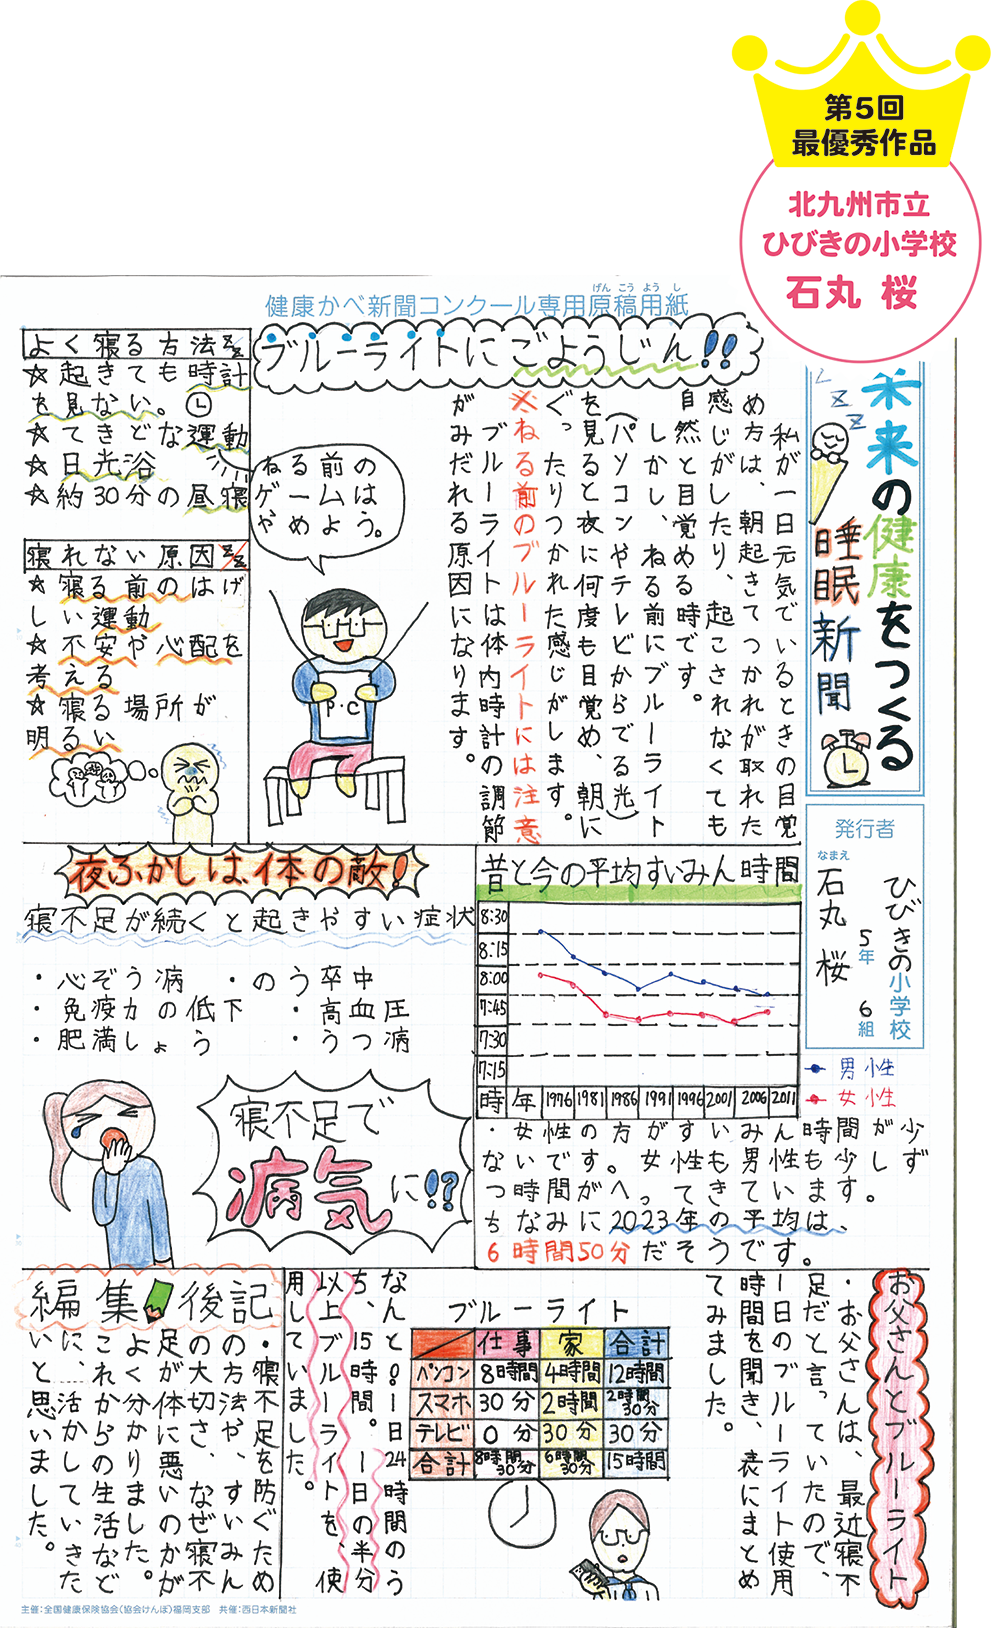 第5回
最優秀作品
北九州市立
ひびきの小学校
石丸 桜
健康かべ新聞コンクール専用原稿用紙
げん こう よう し
未来の健康をつくる
睡眠新聞
発行者
ひびきの小学校
5年
6組
なまえ
石丸 桜
ブルーライトにごようじん!!
私が一日元気でいるときの目覚
め方は、朝起きてつかれが取れた
感じがしたり、起こされなくても
自然と目覚める時です。
しかし、ねる前にブルーライト
(パソコンやテレビからでる光)
を見ると夜に何度も目覚め、朝に
ぐったりつかれた感じがします。
※ねる前のブルーライトには注意
ブルーライトは体内時計の調節
がみだれる原因になります。
ねる前の
ゲームは
やめよう。
P.C
よく寝る方法zz
☆起きても時計
を見ない。
☆てきどな運動
☆日光浴
☆約30分の昼寝
寝れない原因zz
☆寝る前のはげ
しい運動
☆不安や心配を
考える
☆寝る場所が
明るい
夜ふかしは、体の敵!
寝不足が続くと起きやすい症状
・心ぞう病 ・のう卒中
・免疫力の低下 ・高血圧
・肥満しょう ・うつ病
寝不足で
病気に!?
昔と今の平均すいみん時間
8:30
8:15
8:00
7:45
7:30
7:15
時 年 1976 1981 1986 1991 1996 2001 2006 2011
男性
女性
・女性の方がすいみん時間が少
ないです。女性も男性も少しず
つ時間がへってきています。
ちなみに2023年の平均は、
6時間50分だそうです。
お父さんとブルーライト
・お父さんは、最近寝不
足だと言っていたので、
1日のブルーライト使用
時間を聞き、表にまとめ
てみました。
ブルーライト
仕事 家 合計
パソコン 8時間 4時間 12時間
スマホ 30分 2時間 2時間30分
テレビ 0分 30分 30分
合計 8時間30分 6時間30分 15時間
なんと!!1日24時間のう
ち、15時間。1日の半分
以上ブルーライトを、使
用していました。
編集後記
・寝不足を防ぐため
の方法や、すいみん
の大切さ、なぜ寝不
足が体に悪いのかが
よく分かりました。
これからの生活など
に、…活かしていきた
いと思いました。
主催:全国健康保険協会(協会けんぽ)福岡支部 共催:西日本新聞社